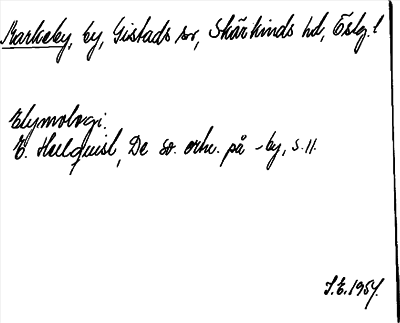 Markeby, by, Gistads sn, Skärkinds hd, Östg. l
Etymologi.
E. Hellquist, De sv. ortn. på -by, s. 11.
S.E. 1957.